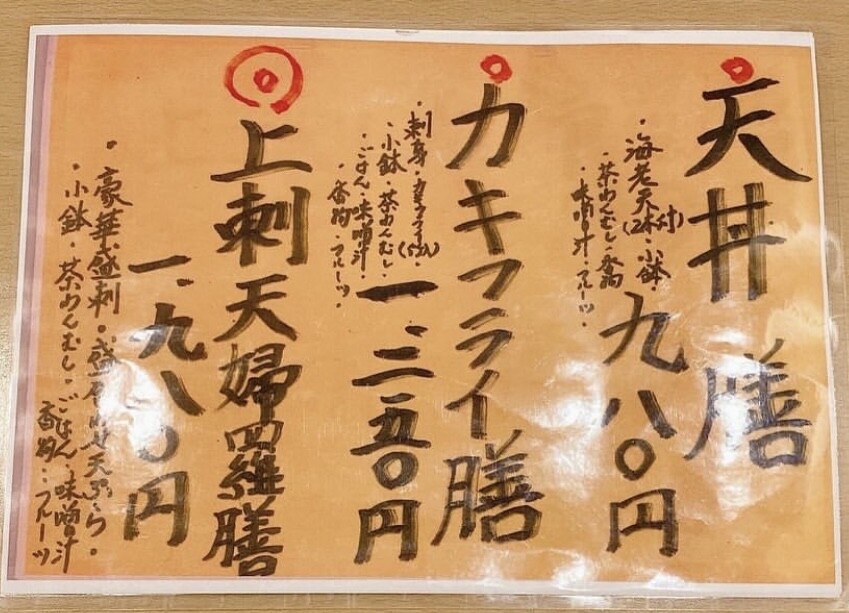 天丼膳
・海老天(2本)付・小鉢
・茶わんむし・香物
・味噌汁・フルーツ・
九八〇円
カキフライ膳
・刺身・カキフライ(5ヶ入)・
・小鉢・茶わんむし・
・ごはん・味噌汁・
・香物・フルーツ・
一、三五〇円
上刺天婦羅膳
・豪華盛刺・盛合わせ天ぷら・
・小鉢・茶わんむし・ごはん・味噌汁
香物・フルーツ
一、九八〇円